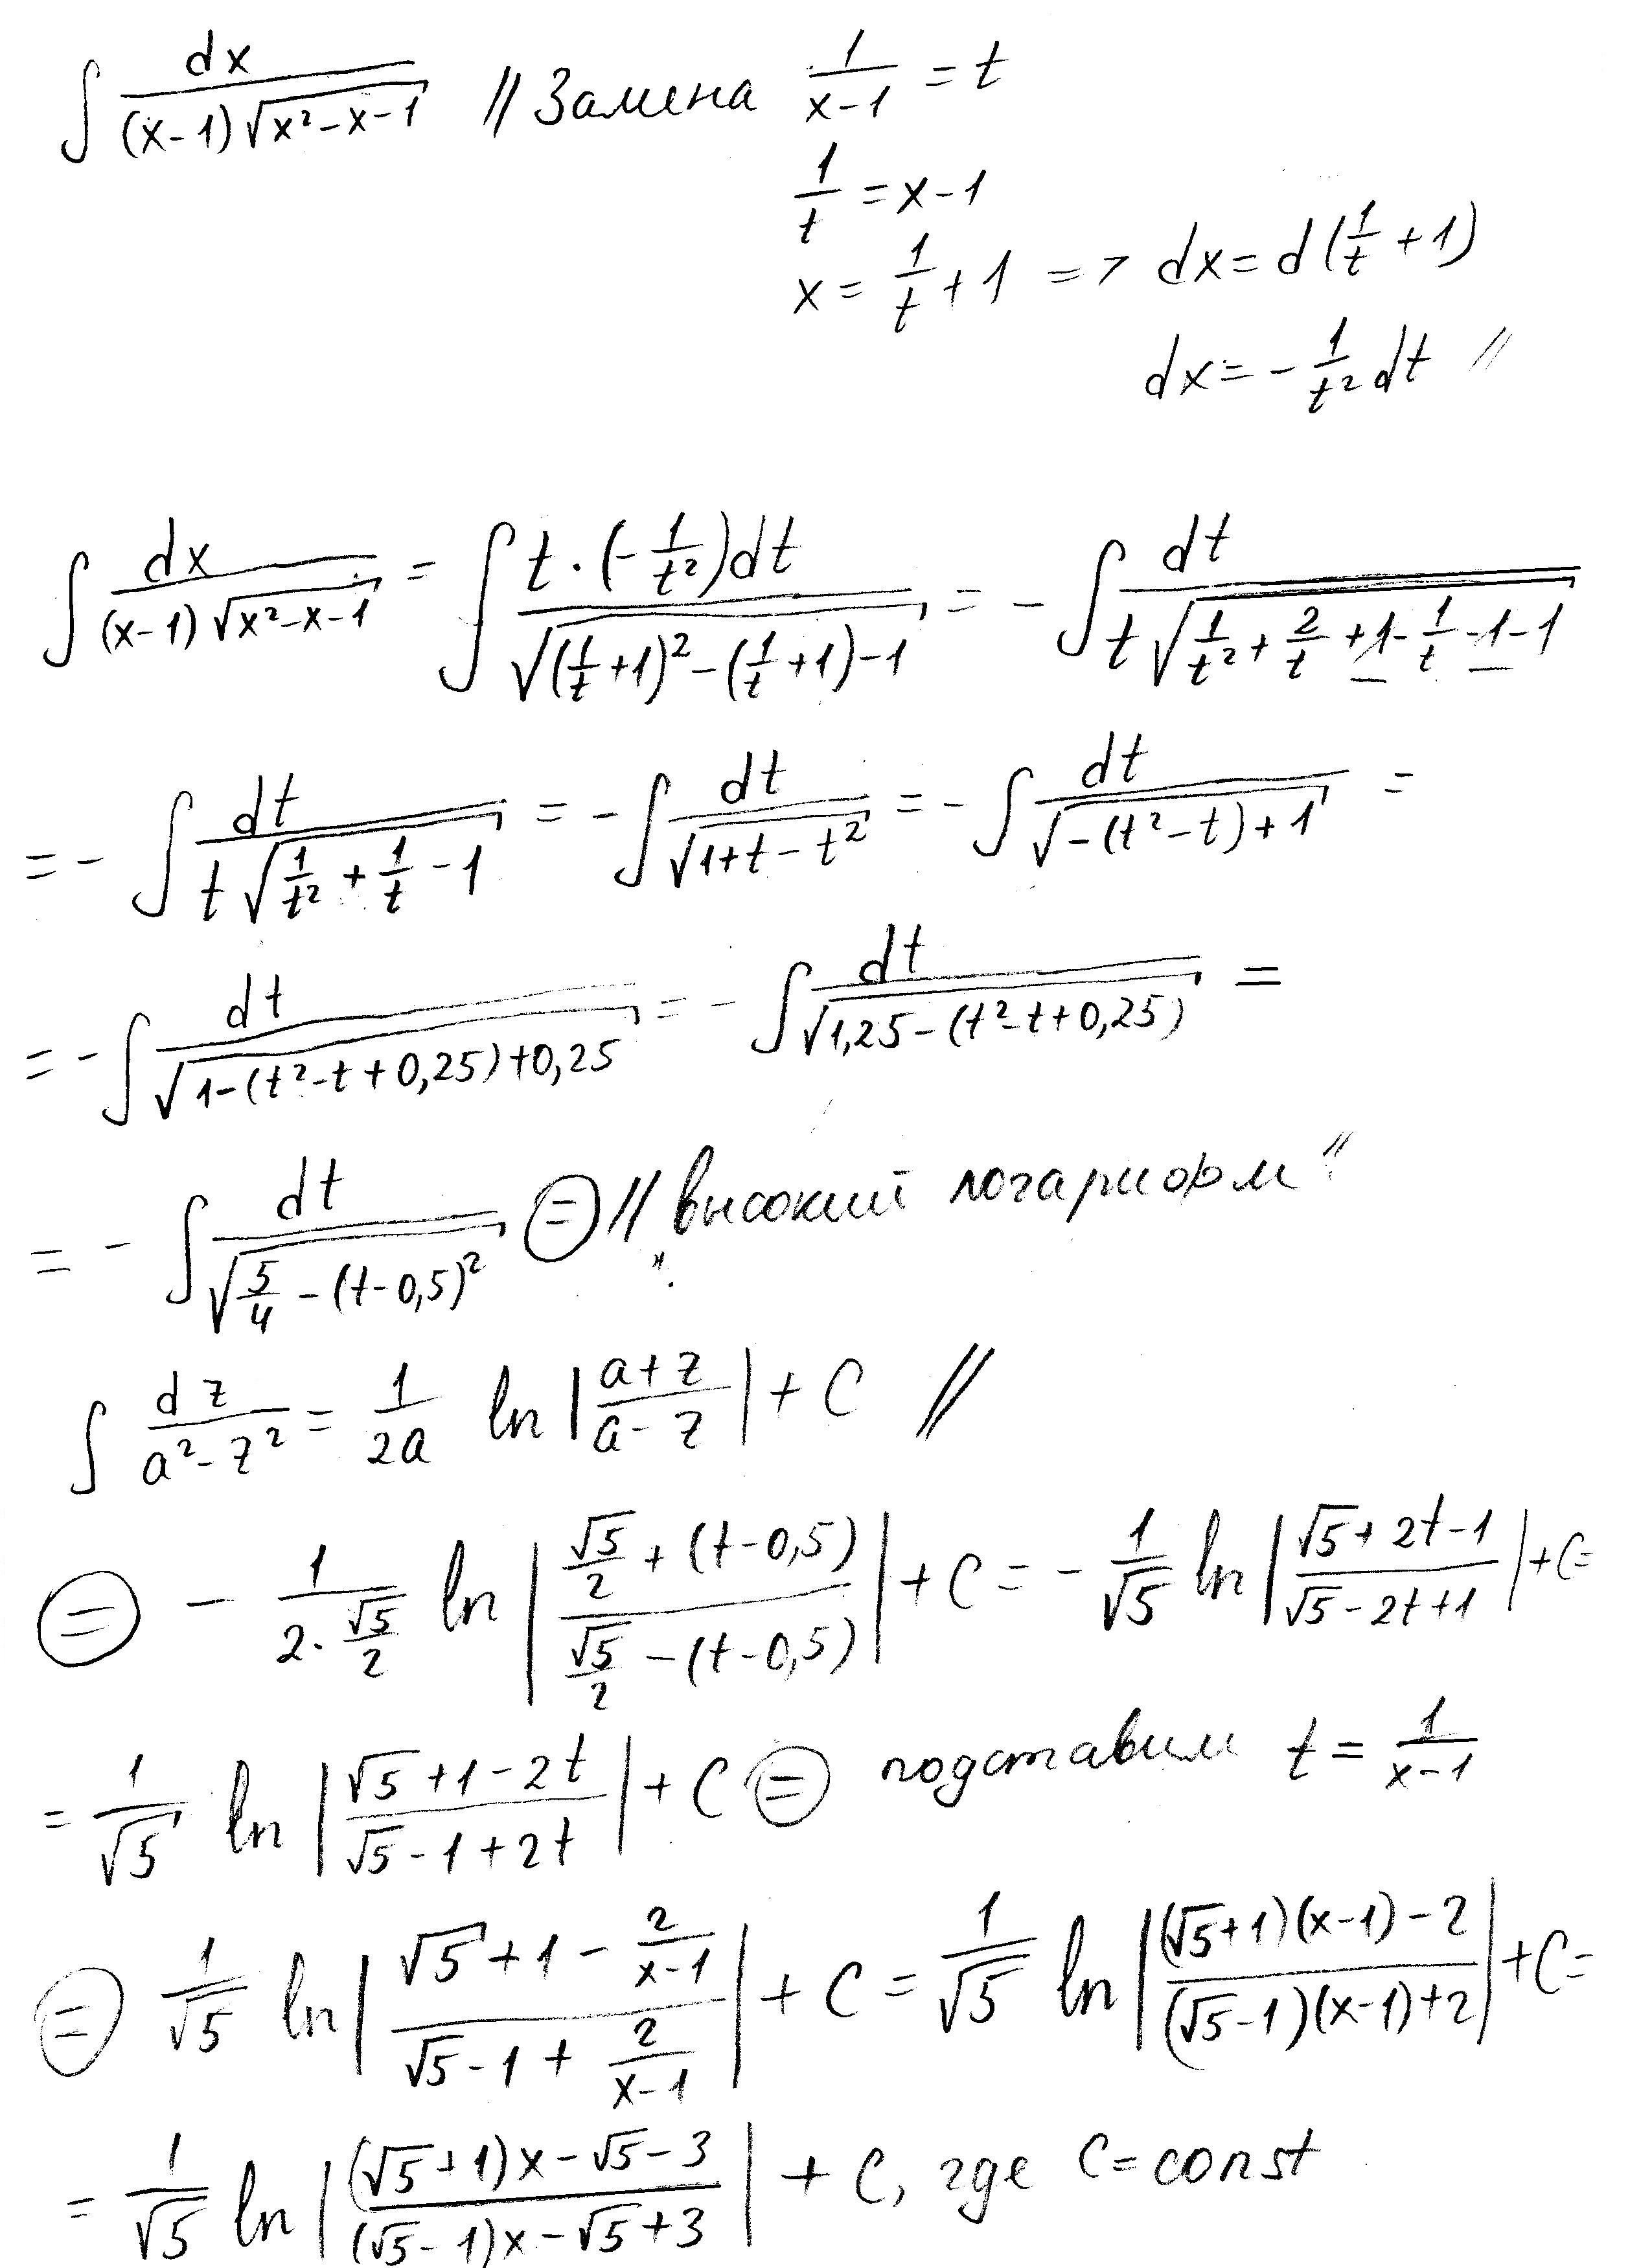 ∫ dx / ((x-1)√(x²-x-1)) // Замена 1/(x-1) = t
1/t = x-1
x = 1/t + 1 => dx = d(1/t + 1)
dx = - 1/t² dt //
∫ dx / ((x-1)√(x²-x-1)) = ∫ t·(-1/t²)dt / √((1/t+1)² - (1/t+1) - 1) = - ∫ dt / (t√(1/t² + 2/t + 1 - 1/t - 1 - 1))
= - ∫ dt / (t√(1/t² + 1/t - 1)) = - ∫ dt / √(1+t-t²) = - ∫ dt / √(-(t²-t)+1) =
= - ∫ dt / √(1-(t²-t+0,25)+0,25) = - ∫ dt / √(1,25-(t²-t+0,25)) =
= - ∫ dt / √(5/4 - (t-0,5)²) ⊜ // "высокий логарифм"
∫ dz / (a²-z²) = 1/(2a) ln |(a+z)/(a-z)| + C //
⊜ - 1/(2·√5/2) ln |(√5/2 + (t-0,5)) / (√5/2 - (t-0,5))| + C = - 1/√5 ln |(√5+2t-1)/(√5-2t+1)| + C =
= 1/√5 ln |(√5+1-2t)/(√5-1+2t)| + C ⊜ подставим t = 1/(x-1)
⊜ 1/√5 ln |(√5+1 - 2/(x-1)) / (√5-1 + 2/(x-1))| + C = 1/√5 ln |((√5+1)(x-1)-2) / ((√5-1)(x-1)+2)| + C =
= 1/√5 ln |((√5+1)x-√5-3) / ((√5-1)x-√5+3)| + C, где C = const